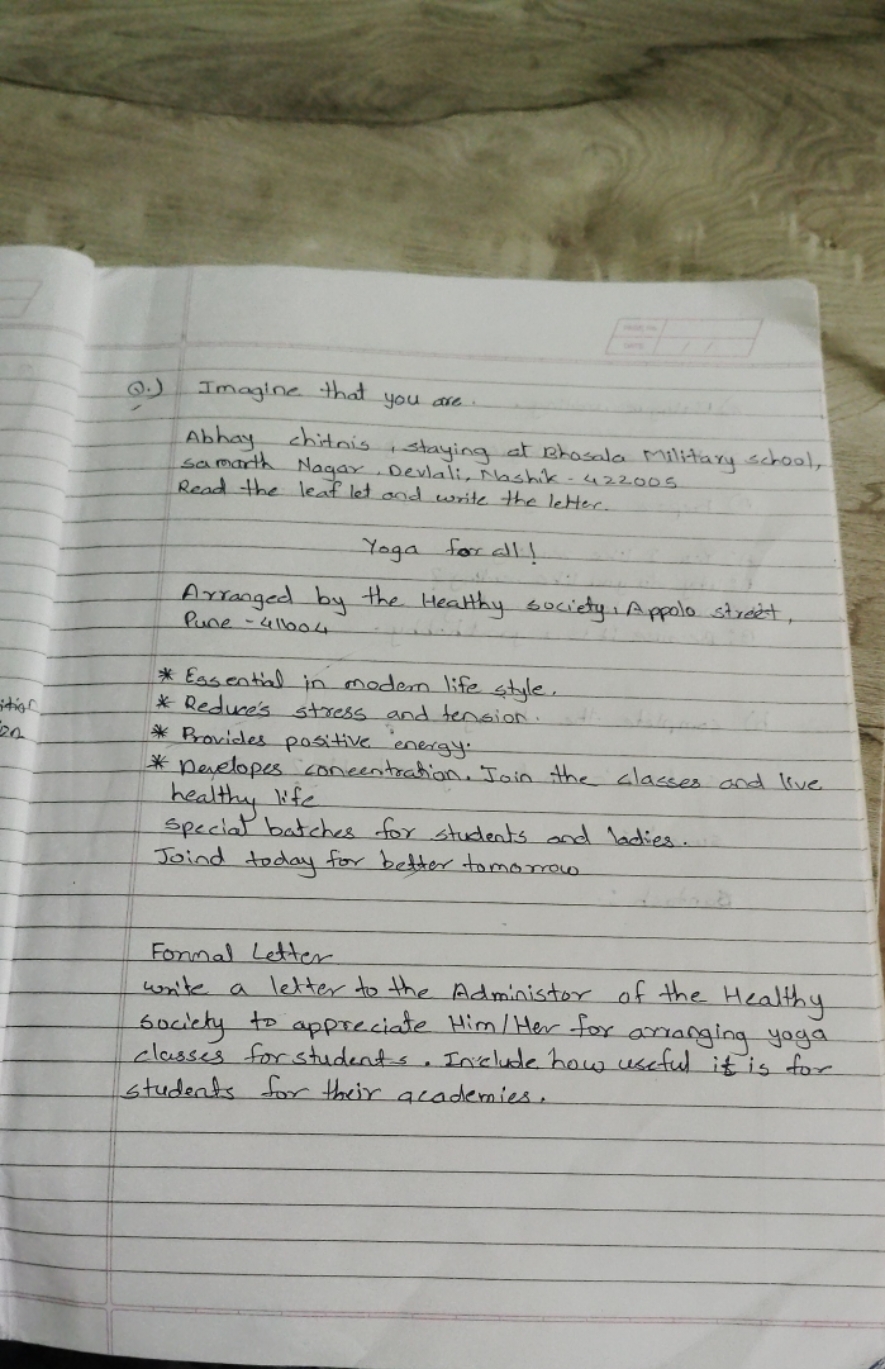 ition
en
Q.) Imagine that you are.
Abhay chitnis, staying at Bhosala Military school,
samarth Nagar, Devlali, Nashik - 422005
Read the leaflet and write the letter.
Yoga for all!
Arranged by the Healthy society, Appolo street,
Pune - 411004
* Essential in modern life style.
* Reduce's stress and tension.
* Provides positive energy.
* Developes concentration. Join the classes and live
healthy life
special batches for students and ladies.
Joind today for better tomorrow
Formal Letter
write a letter to the Administor of the Healthy
society to appreciate Him/Her for arranging yoga
classes for students. Include how useful it is for
students for their academies.